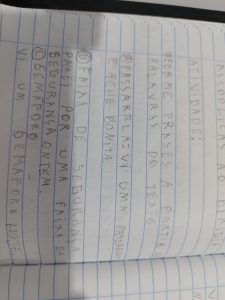 ATIVIDADE:
FORME FRASES A PARTIR
PALAVRAS DO TEXTO
A) PASSARELA = VI UMA PASSARELA
E ACHEI BONITA.
B) FAIXA DE SEGURANÇA
PASEI POR UMA FAIXA DE
SEGURANÇA ONTEM.
C) SEMAFORO
VI UM SEMAFORO